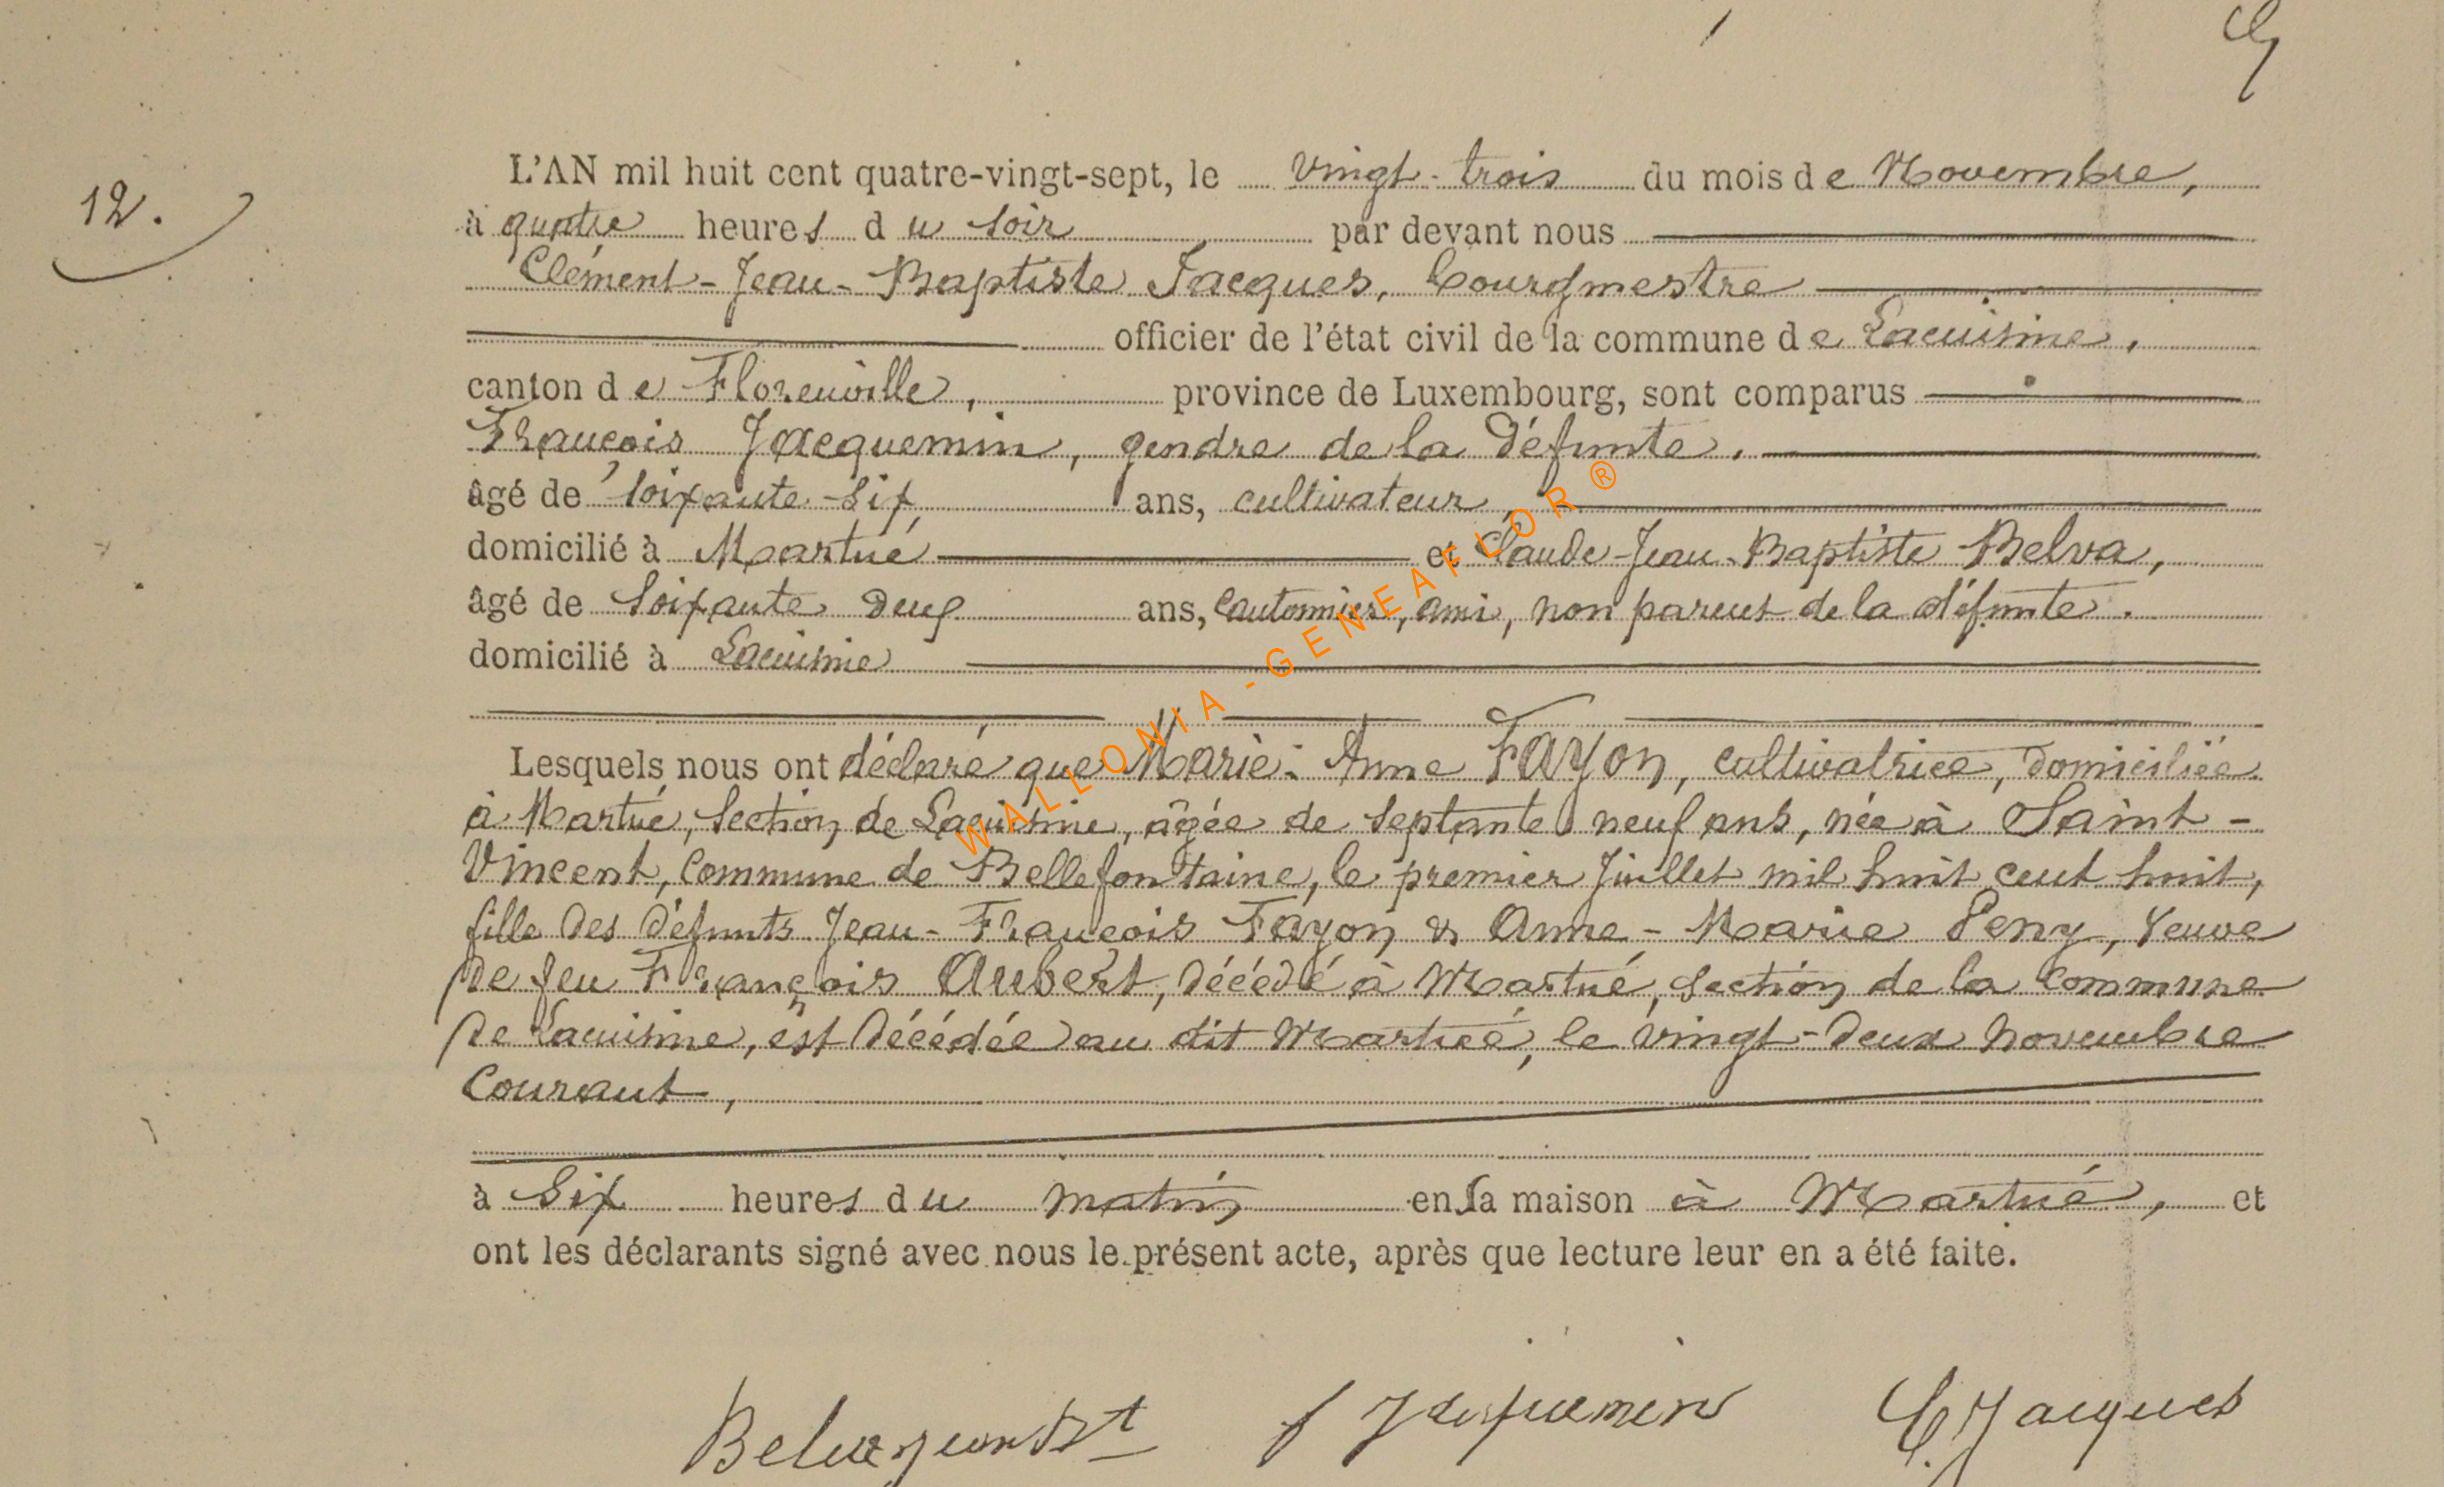 12.
L'AN mil huit cent quatre-vingt-sept, le vingt-trois du mois de Novembre,
à quatre heures du soir par devant nous
Clément-Jean-Baptiste Jacques, bourgmestre
officier de l'état civil de la commune de Lacuisine,
canton de Florenville, province de Luxembourg, sont comparus
François Jacquemin, gendre de la défunte,
âgé de soixante-six ans, cultivateur,
domicilié à Martué et Claude-Jean-Baptiste Belva,
âgé de soixante deux ans, cantonnier, ami, non parent de la défunte.
domicilié à Lacuisine
Lesquels nous ont déclaré que Marie-Anne FAYON, cultivatrice, domiciliée
à Martué, section de Lacuisine, âgée de septante neuf ans, née à Saint-
Vincent, commune de Bellefontaine, le premier Juillet mil huit cent huit,
fille des défunts Jean-François Fayon & Anne-Marie Peny, veuve
de feu François Aubert, décédé à Martué, section de la commune
de Lacuisine, est décédée au dit Martué, le vingt-deux novembre
courant,
à six heures du matin en sa maison à Martué, et
ont les déclarants signé avec nous le présent acte, après que lecture leur en a été faite.
f Jacquemin C. Jacques
WALLONIA-GENEAFLOR®